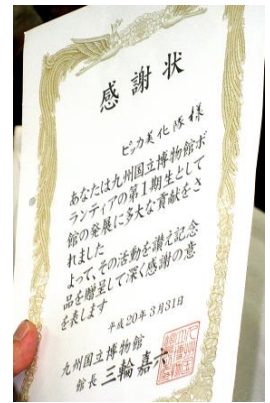 感謝状
ピッカ美化隊様
あなたは九州国立博物館ボ
ランティアの第1期生として
館の発展に多大な貢献をさ
れました
よって、その活動を讃え記念
品を贈呈して深く感謝の意
を表します
平成20年3月31日
九州国立博物館
館長 三輪嘉六